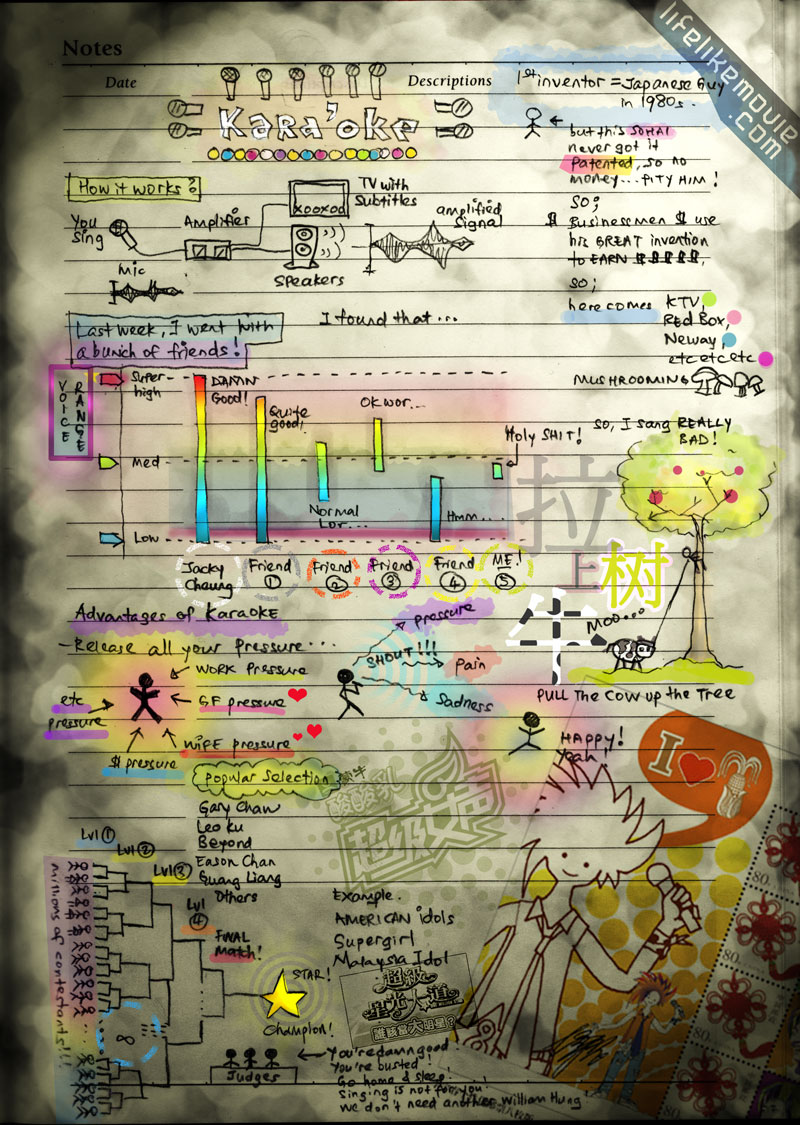 lifelikemovie
.com
Notes
Date
Descriptions
Kara'oke
1st inventor = Japanese Guy
in 1980s.
but this SOHAI
never got it
Patented, so no
money... PITY HIM!
How it works?
You
Sing
Mic
Amplifier
TV with
Subtitles
xooxoo
Speakers
amplified
Signal
so;
$ Businessmen $ use
his GREAT invention
to EARN $ $ $ $ $,
so;
here comes
KTV,
Red Box,
Neway,
etc etc etc
MUSHROOMING
Last week, I went with
a bunch of friends!
I found that...
VOICE
RANGE
Super
high
Med
Low
DAMN
Good!
Quite
good!
Normal
Lor...
OK wor...
Hmm....
Holy SHIT!
Jacky
Cheung
Friend
①
Friend
②
Friend
③
Friend
④
ME!
⑤
so, I sang REALLY
BAD!
拉
上
树
牛
MOO...
PULL THE COW UP THE TREE
Advantages of KARAOKE
-Release all your Pressure...
WORK Pressure
GF pressure
WIFE pressure
$ pressure
etc
pressure
SHOUT!!!
pressure
Pain
Sadness
HAPPY!
Yeah!
Popular Selection
Gary Chaw
Leo Ku
Beyond
Eason Chan
Guang Liang
Others
酸酸乳
超级女声
I
Lvl ①
Lvl ②
Lvl ③
Lvl
④
FINAL
Match!
millions of contestants!!!
∞
STAR!
Champion!
Judges
Example.
AMERICAN idols
Supergirl
Malaysia Idol
超級
星光大道
誰能當大明星?
You're damn good.
You're busted!
Go home & sleep!
Singing is not for you!
We don't need another William Hung
80
80
80
80